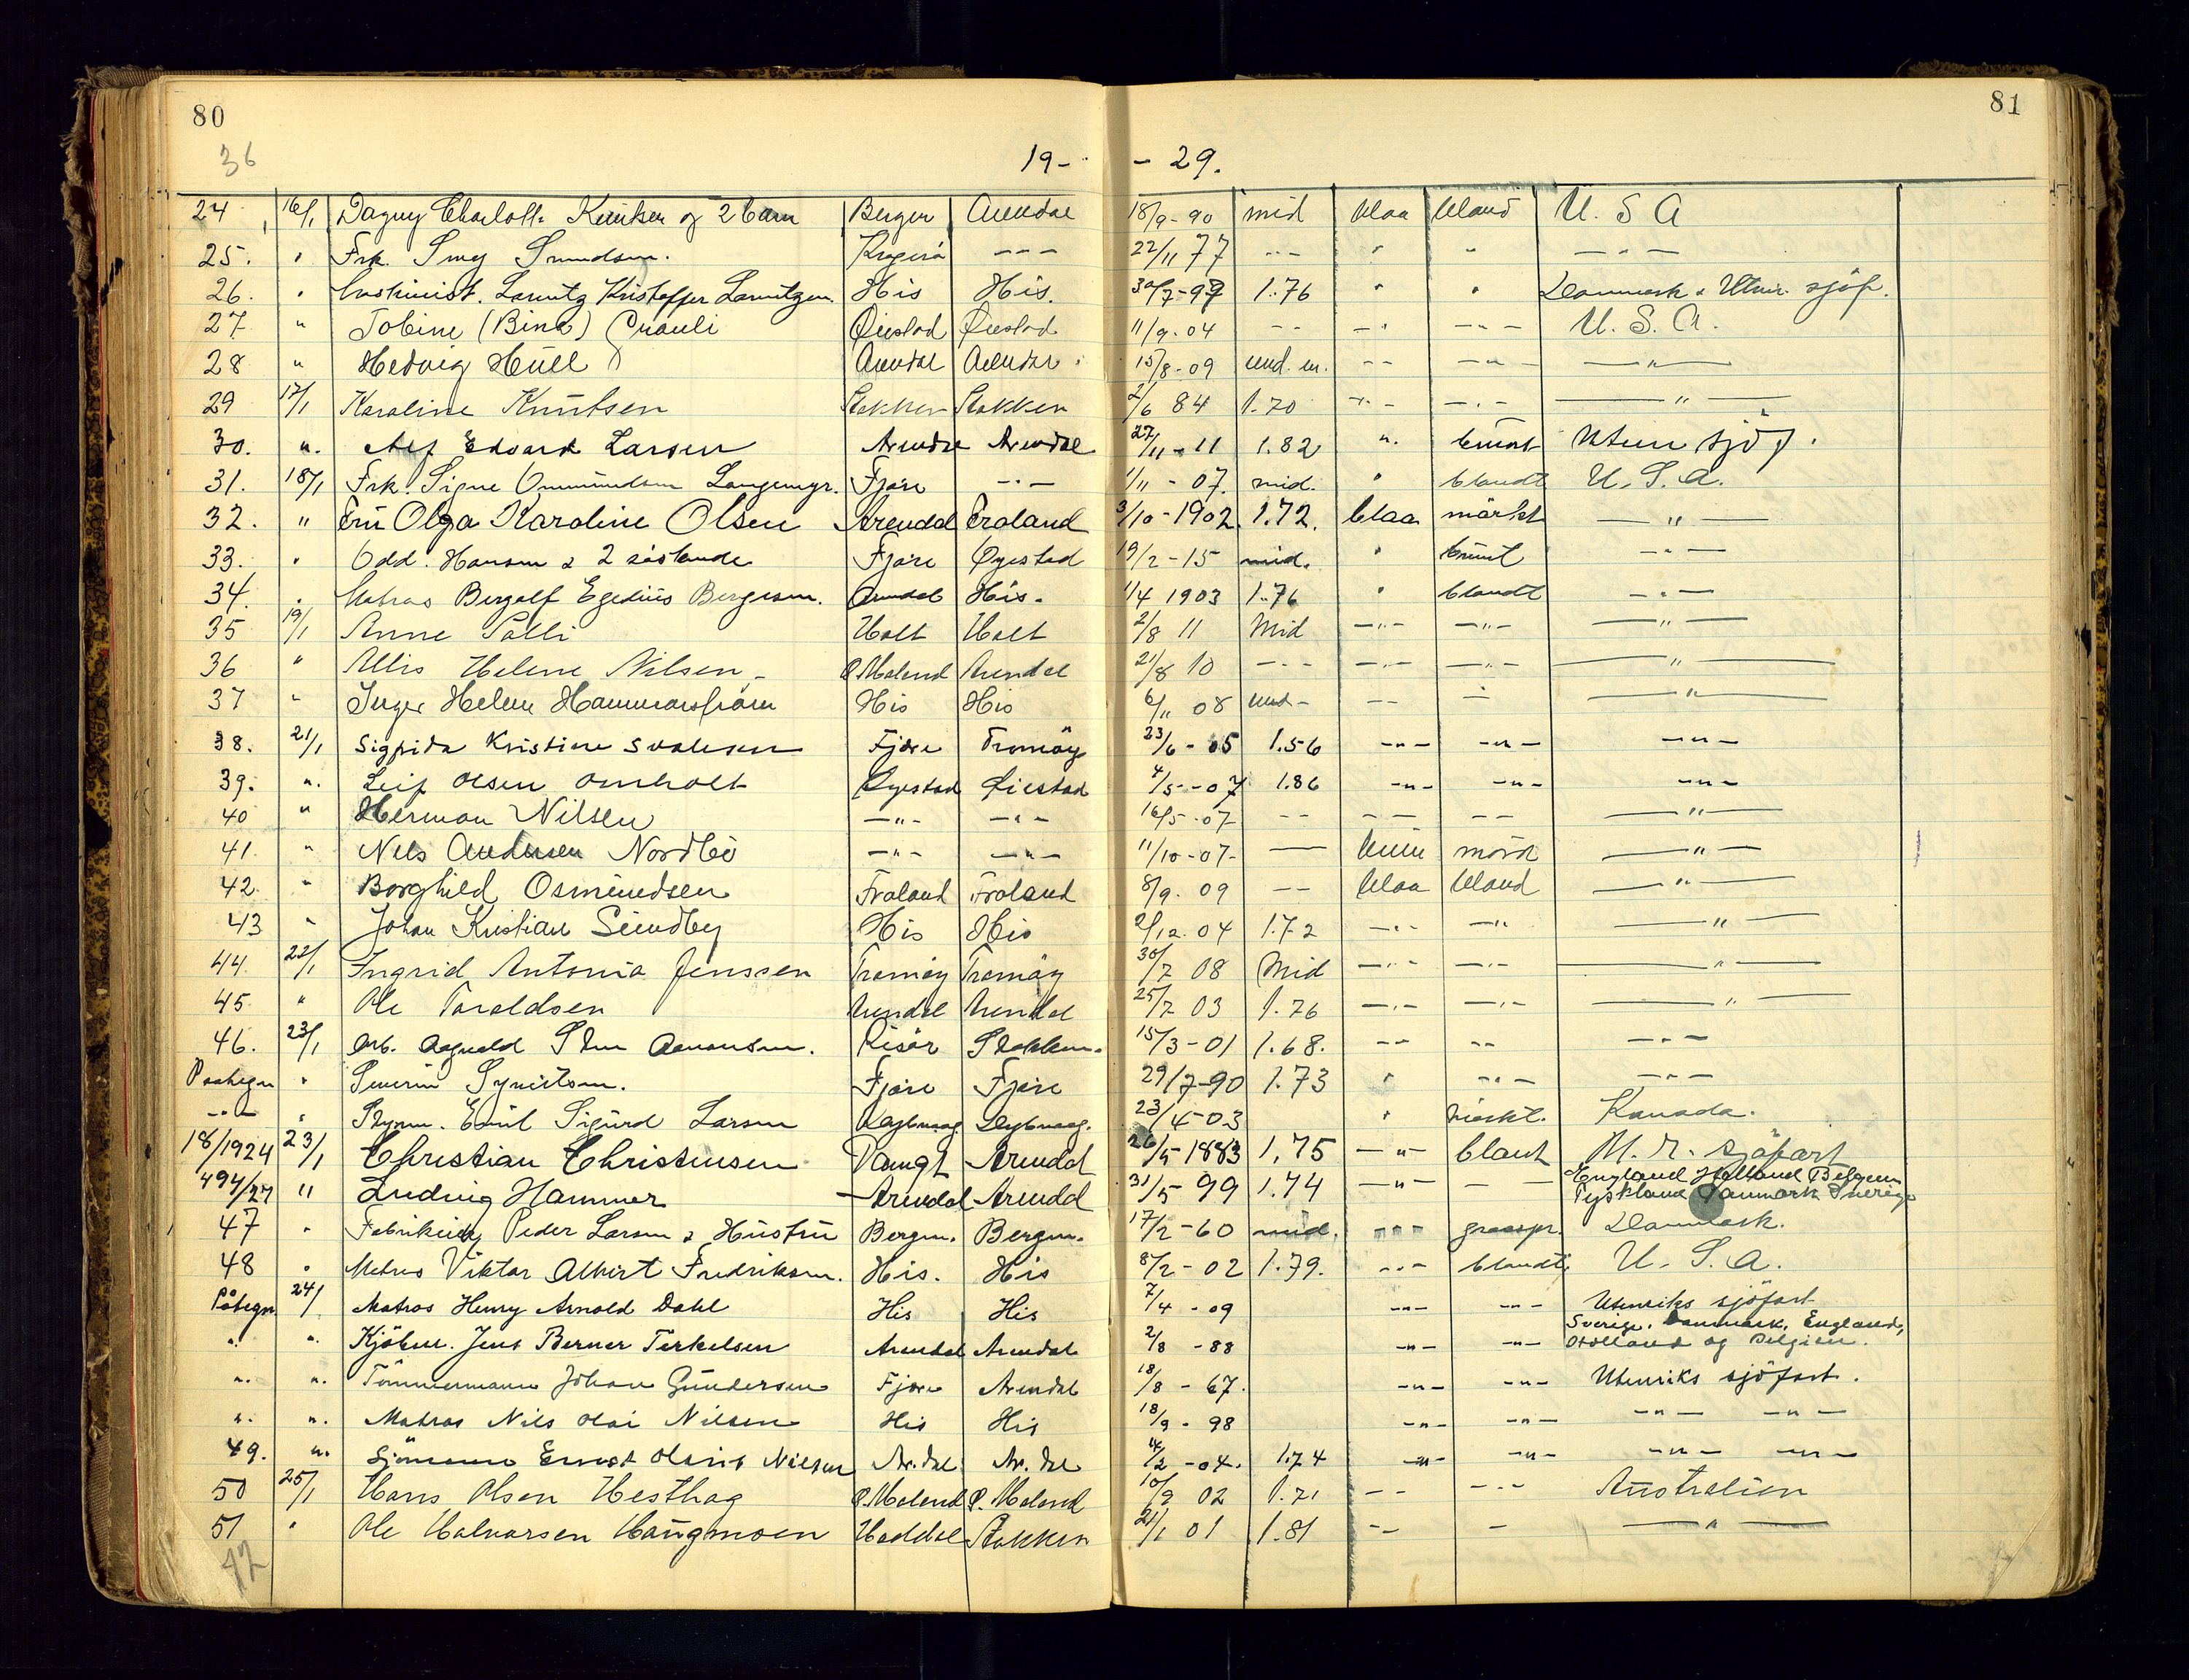 80
81
36
19-
- 29.
24 16/1 Dagny Charlotte og 2 barn Berger Arendal 18/9-90 mid blaa bland U. S A
25. " Frk. Kragerö --- 22/11 77 -- " " - " -
26. " Lauritz Kristoffer Lauritzen. His His. 30/7-97 1.76 " " Danmark & Uten. sjöf.
27 " Tobine (Bina) Öiestad Öiestad 11/9.04 -- - " - - " - U. S. A.
28 " Hedvig Arendal Arendal 15/8-09 und. m. -- - " - - " -
29 17/1 Karoline Knutsen Stokken Stokken 2/6 84 1.70 - " - - " - - " -
30. ". Alf Edvard Larsen Arendal Arendal 27/11-11 1.82 ". brunt Uten sjöf.
31. 18/1 Frk. Signe Ommundsen Langemyr. Fjære - " - 1/11 - 07. mid. " blandt U. S. A.
32. " Frü Olga Karoline Olsen Arendal Froland 3/10-1902 1.72. blaa märkt - " -
33. " Odd Hansen & 2 söskende Fjære Øyestad 19/2-15 mid. " brunt - " -
34. " Matros Bergolf Egedius Bergesen. Arendal His. 1/4 1903 1.76 " blandt - " -
35 19/1 Anne Holt Holt 2/8 11 Mid - " - - " - - " -
36 " Helene Nilsen Ö. Moland Arendal 21/8 10 - " - - " - - " - - " -
37 " Inger Helene His His 6/11 08 und- -- - " - - " -
38. 21/1 Sigfrida Kristine Fjære Tromöy 23/6-05 1.56 - " - - " - - " -
39. ". Leif Olsen Omholt Øyestad Öiestad 4/5--07 1.86 - " - - " - - " -
40 " Herman Nilsen - " - - " - 16/5-07 -- -- -- - " -
41. " Nils Andersen Nordbö - " - - " - 11/10-07- — brun mörk - " -
42. " Borghild Osmundsen Froland Froland 8/9. 09 -- blaa bland - " -
43 " Johan Kristian Sundby His His 21/12. 04 1.72 - " - - " - - " -
44. 22/1 Ingrid Antonia Jenssen Tromöy Tromöy 30/7 08 Mid - " - - " - - " -
45. " Ole Taraldsen Arendal Arendal 25/7 03 1.76 - " - - " - - " -
46. 23/1 Arb. Aanonsen. Risör Stokken. 15/3-01 1.68. -- -- - " -
Paategn " Severin Fjære Fjære 29/7-90 1.73 " - " - - " -
- " - " Styrm. Emil Sigurd Larsen Dypvaag Dypvaag. 23/4-03 " märkt. Kanada.
18/1924 23/1 Christian Christensen Arendal 26/5-1883 1,75 - " - blant U. r. sjöfart
494/27 " Ludvig Hammer Arendal Arendal 31/5-99 1.74 - " - - - England Holland Belgien
Tyskland Danmark Sverige
47 " Peder Larsen & Hustru Bergen. Bergen. 17/2-60 mid. - " - graaspr. Danmark.
48 " Matros Viktor Albert Fredriksen. His. His 8/2-02 1.79. - " - blandt U. S. A.
Påtegn 24/1 Matros Henry Arnold Dahl His His 7/4-09 - " - - " - Utenriks sjöfart
". ". Kjöbm. Jens Berner Terkelsen Arendal Arendal 2/8-88 - " - - " - Sverige, Danmark, England,
Holland og Belgien.
". ". Tömmermann Johan Gundersen Fjære Arendal 18/8-67. - " - - " - Utenriks sjöfart.
". ". Matros Nils Olai Nilsen His His 18/9-98 - " - - " - - " - - " -
49. ". Sjömann Ernst Nilsen Ar.dal Ar.dal 14/2-04. 1.74 - " - - " - - " - - " -
50 25/1 Hans Olsen Hesthag Ö. Moland Ö. Moland 10/9 02 1.71 -- - " - Australien
51 " Ole Halvorsen Haugmoen Heddal Stokken 21/1 01 1.81 -- - - " -
42